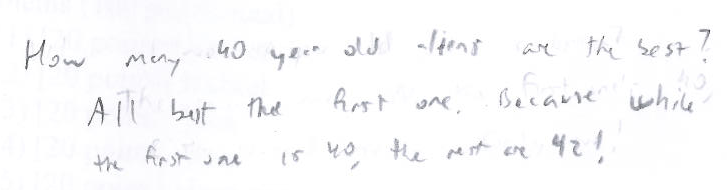 How many 40 year old aliens are the best?
All but the first one. Because while
the first one is 40, the rest are 42!